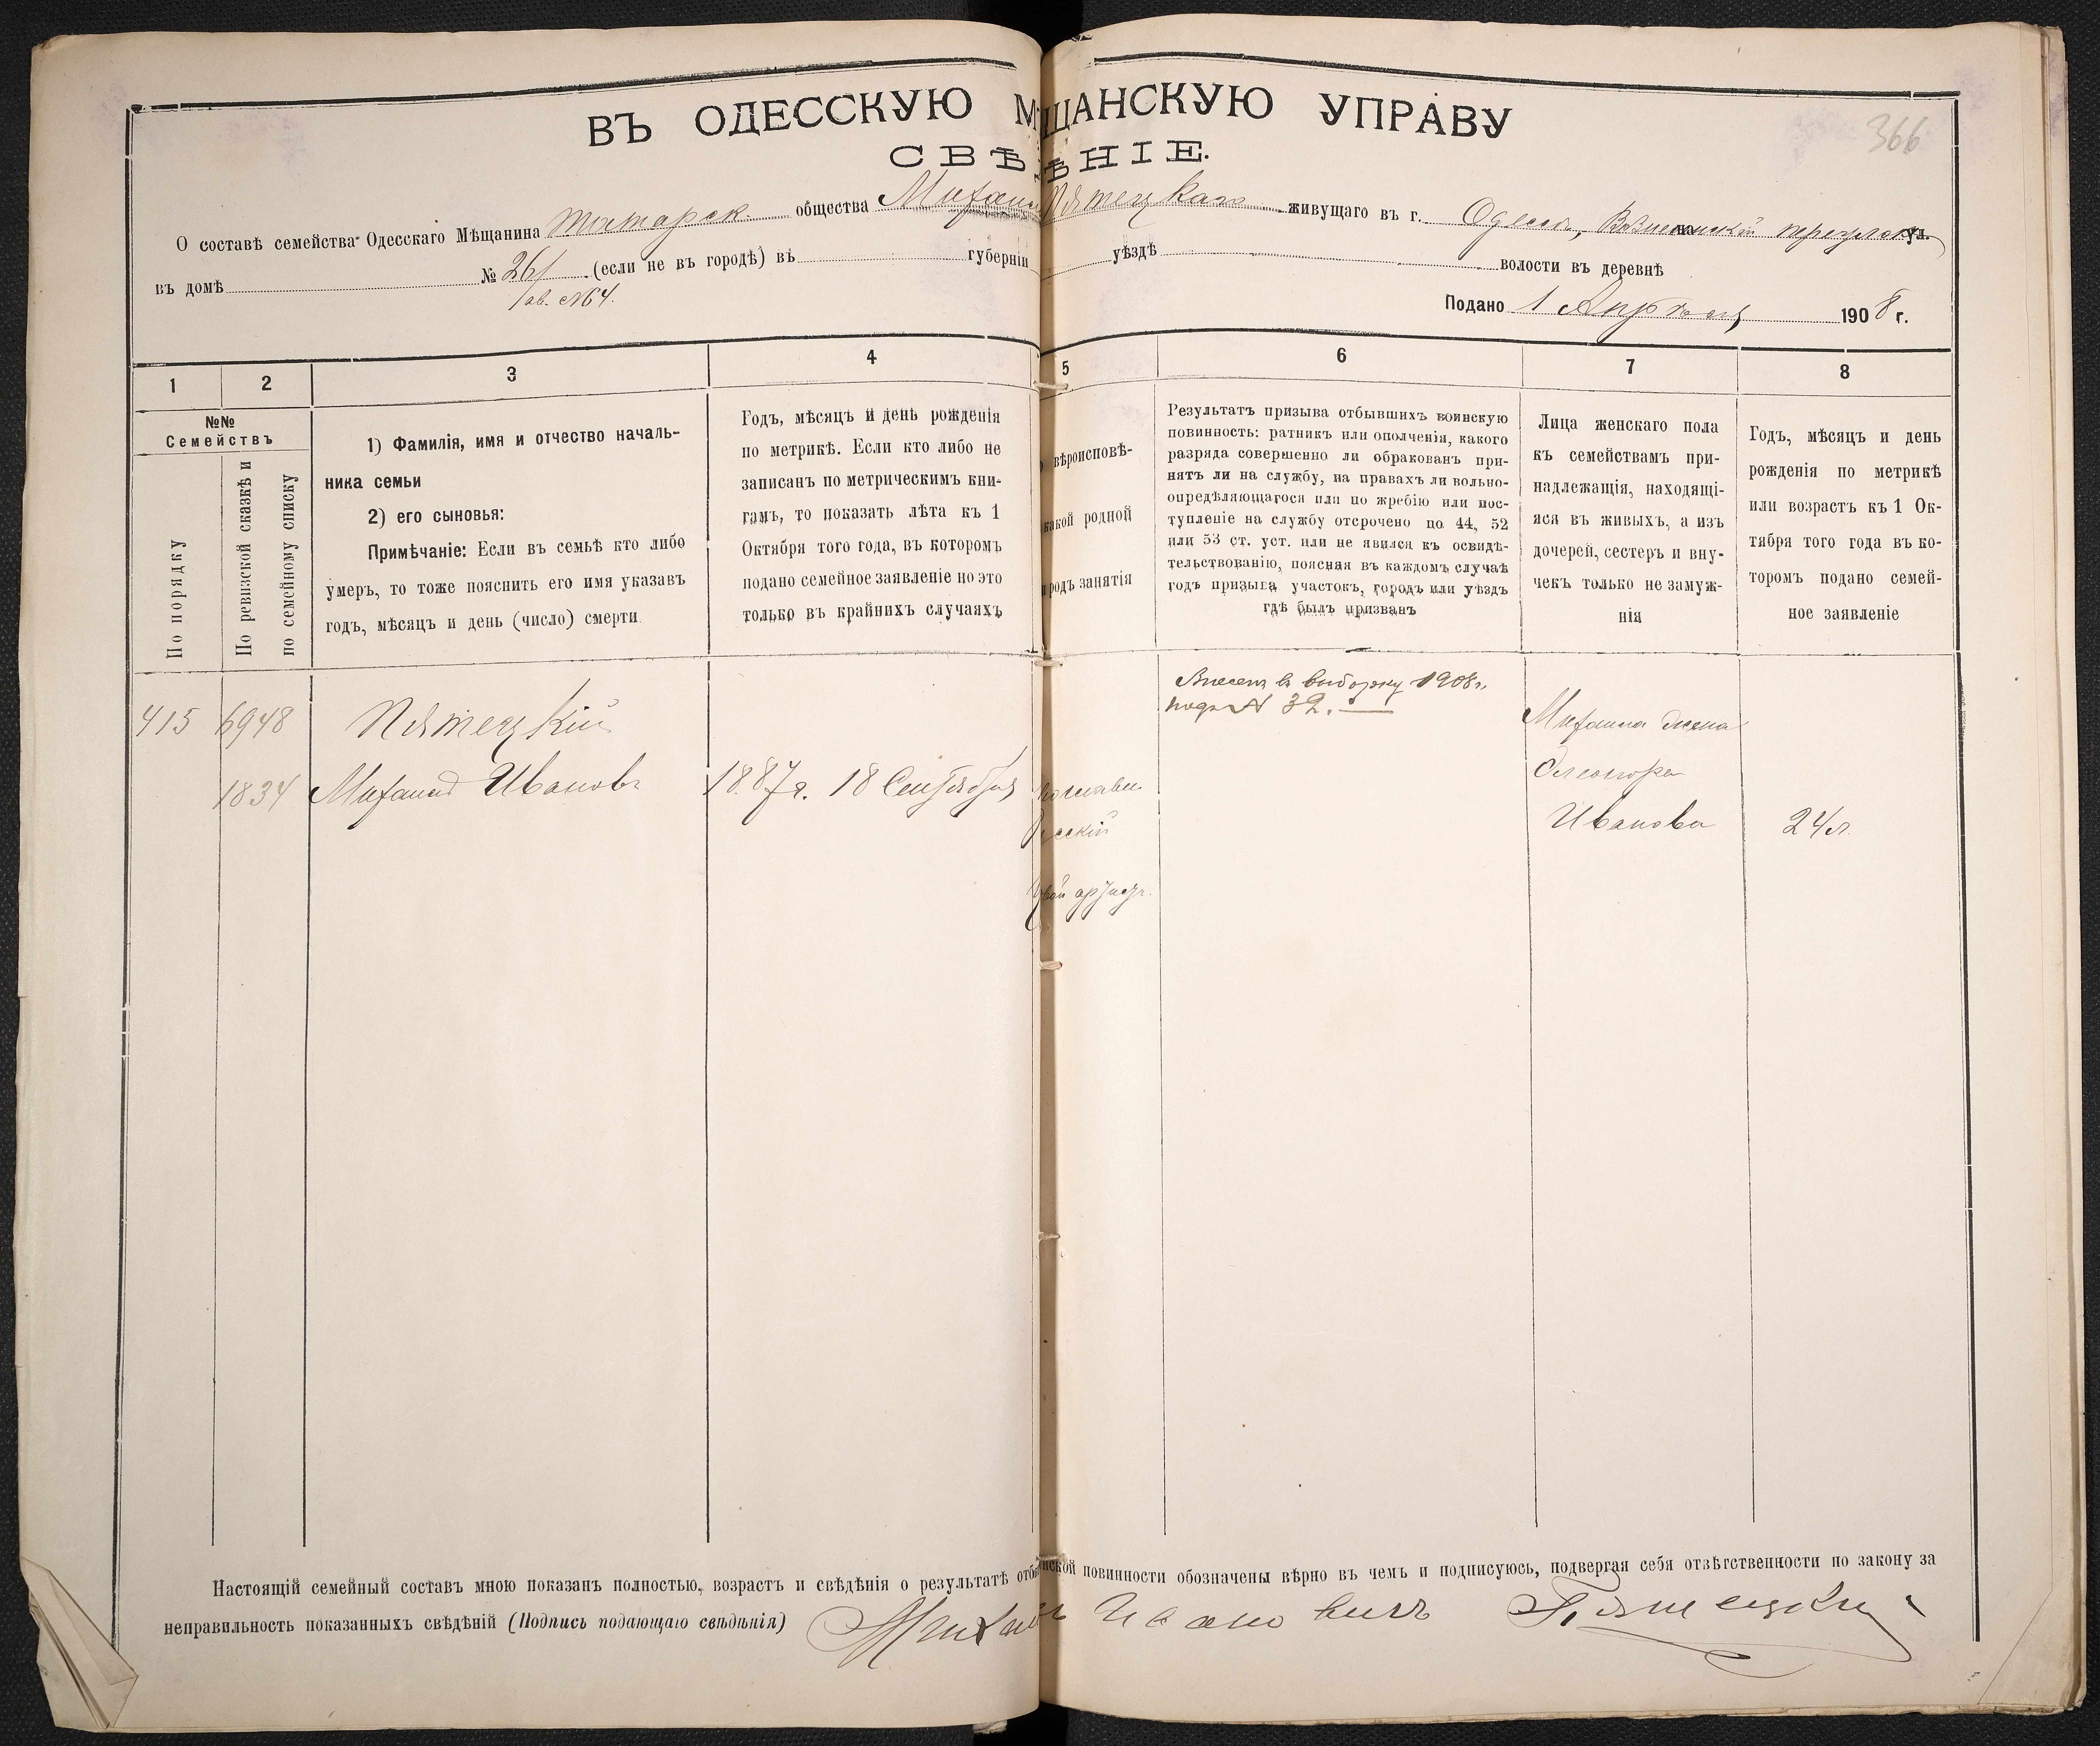 ВЪ ОДЕССКУЮ М ЩАНСКУЮ УПРАВУ
366
СВѢ ѢНІЕ.
О составѣ семейства Одесскаго Мѣщанина татарск. общества Михаила Пятецкаго живущаго въ г. Одесса, переулокъ ул.
въ домѣ № 261 (если не въ городѣ) въ губерніи уѣздѣ волости въ деревнѣ
кв. №64.
Подано 1 Апрѣля 1908 г.
1 2 3 4 5 6 7 8
№№
Семействъ
По порядку
По ревизской сказкѣ и
по семейному списку
1) Фамилія, имя и отчество началь-
ника семьи
2) его сыновья:
Примѣчаніе: Если въ семьѣ кто либо
умеръ, то тоже пояснить его имя указавъ
годъ, мѣсяцъ и день (число) смерти
Годъ, мѣсяцъ и день рожденія
по метрикѣ. Если кто либо не
записанъ по метрическимъ кни-
гамъ, то показать лѣта къ 1
Октября того года, въ которомъ
подано семейное заявленіе но это
только въ крайнихъ случаяхъ
вѣроисповѣ-
какой родной
родъ занятія
Результатъ призыва отбывшихъ воинскую
повинность: ратникъ или ополченія, какого
разряда совершенно ли обракованъ при-
нятъ ли на службу, на правахъ ли вольно-
опредѣляющагося или по жребію или пос-
тупленіе на службу отсрочено по 44, 52
или 53 ст. уст. или не явился къ освидѣ-
тельствованію, поясняя въ каждомъ случаѣ
годъ призыва участокъ, городъ или уѣздъ
гдѣ былъ призванъ
Лица женскаго пола
къ семействамъ при-
надлежащія, находящі-
яся въ живыхъ, а изъ
дочерей, сестеръ и вну-
чекъ только не замуж-
нія
Годъ, мѣсяцъ и день
рожденія по метрикѣ
или возрастъ къ 1 Ок-
тября того года въ ко-
торомъ подано семей-
ное заявленіе
415 6948 Пятецкій
1834 Михаилъ Ивановъ 1887г. 18 Сентября
Внесенъ въ выборку 1908г.
подъ № 32.
Михаила жена
Элеонора
Иванова 24л.
Настоящій семейный составъ мною показанъ полностью, возрастъ и свѣдѣнія о результатѣ отб нской повинности обозначены вѣрно въ чемъ и подписуюсь, подвергая себя отвѣтственности по закону за
неправильность показанныхъ свѣдѣній (Подпись подающаго свѣдѣнія) Михаилъ Ивановичъ Пятецкій